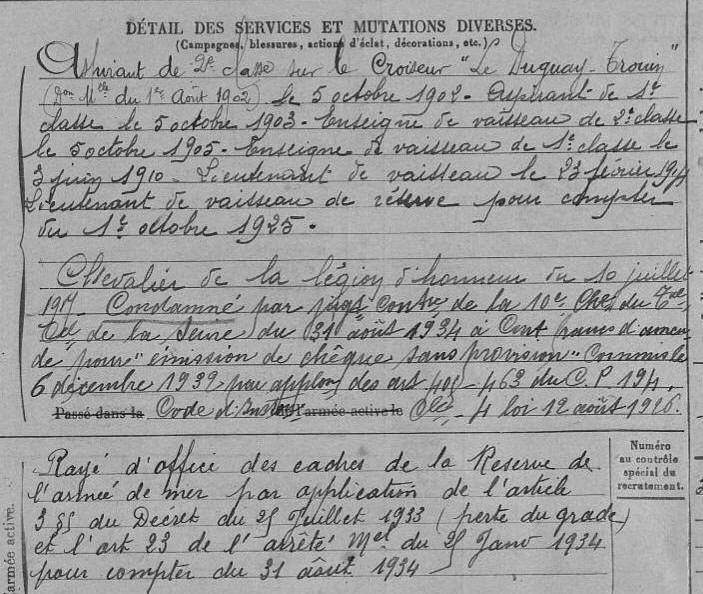 DÉTAIL DES SERVICES ET MUTATIONS DIVERSES.
(Campagnes, blessures, actions d'éclat, décorations, etc.)
Aspirant de 2e classe sur le Croiseur "Le Duguay-Trouin"
(Don Mlle du 1er Août 1902) le 5 octobre 1902 - Aspirant de 1e
classe le 5 octobre 1903 - Enseigne de vaisseau de 2e classe
le 5 octobre 1905 - Enseigne de vaisseau de 1e classe le
3 juin 1910 - Lieutenant de vaisseau le 23 février
Lieutenant de vaisseau de réserve pour compter
du 1er octobre 1925 -
Chevalier de la légion d'honneur du 10 juillet
1917 - Condamné par jugt contre de la 10e Chre du Tal
Cel de la Seine du 31 août 1934 à Cent francs d'amen
de pour "émission de chèque sans provision" Commis le
6 décembre 1932 par applon des art 405 - 463 du C.P 194,
Passé dans la Code d'Inston l'armée active le Clle - 4 loi 12 août 1926.
Rayé d'office des cadres de la Réserve de
l'armée de mer par application de l'article
3 §5 du Décret du 25 Juillet 1933 (perte du grade)
et l'art 23 de l'arrêté Mel du 25 Janv 1934
pour compter du 31 août 1934
Numéro
au contrôle
spécial du
recrutement.
l'armée active.